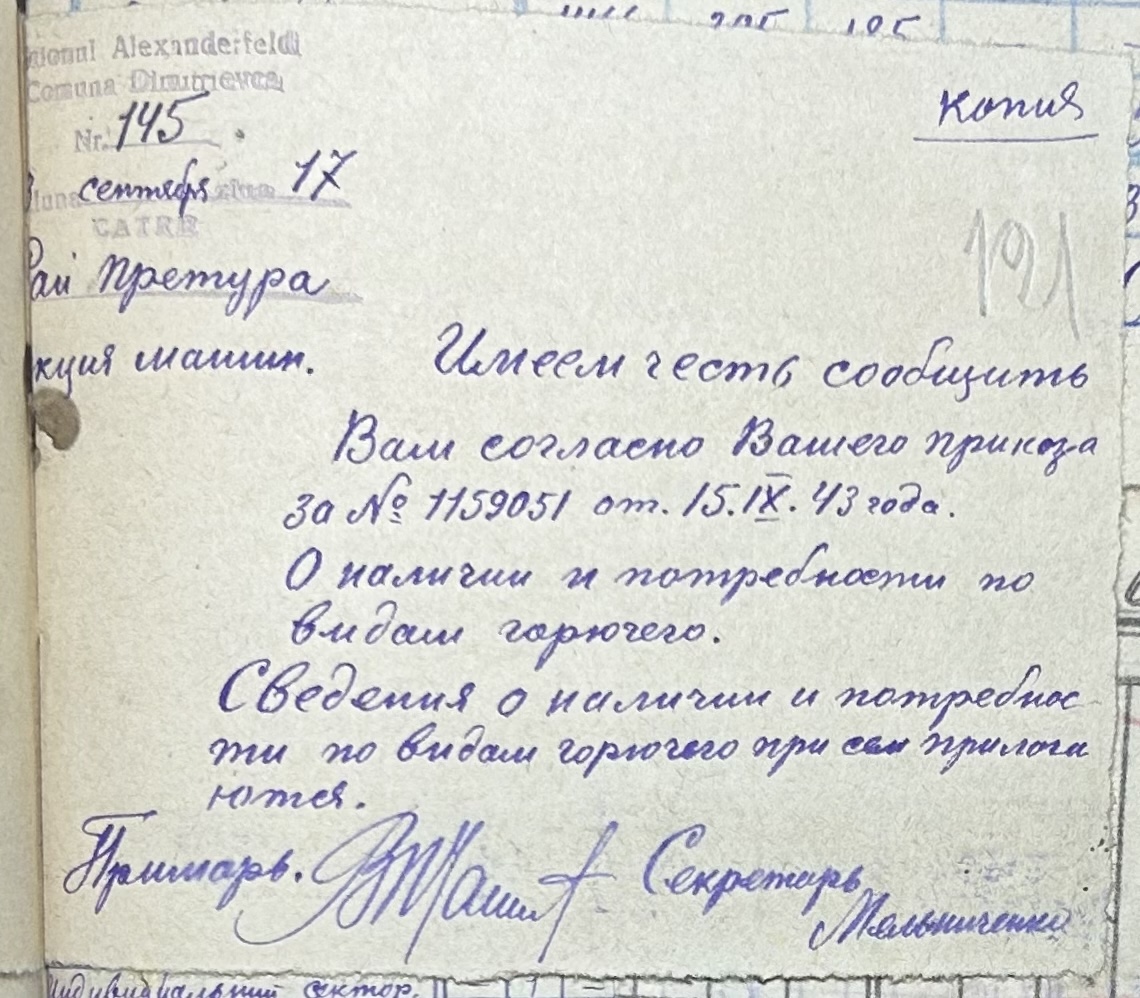 Alexanderfeld
Comuna Dimitrievca
Nr. 145
сентября 17
CATRE
Рай Претура
кция машин.
копия
121
Имеем честь сообщить
Вам согласно Вашего приказа
за № 1159051 от. 15.IX.43 года.
О наличии и потребности по
видам горючего.
Сведения о наличии и потребнос-
ти по видам горючего при сем прилога
ются.
Примарь.
Секретарь
Мельниченко
Индивидиальний сектор.